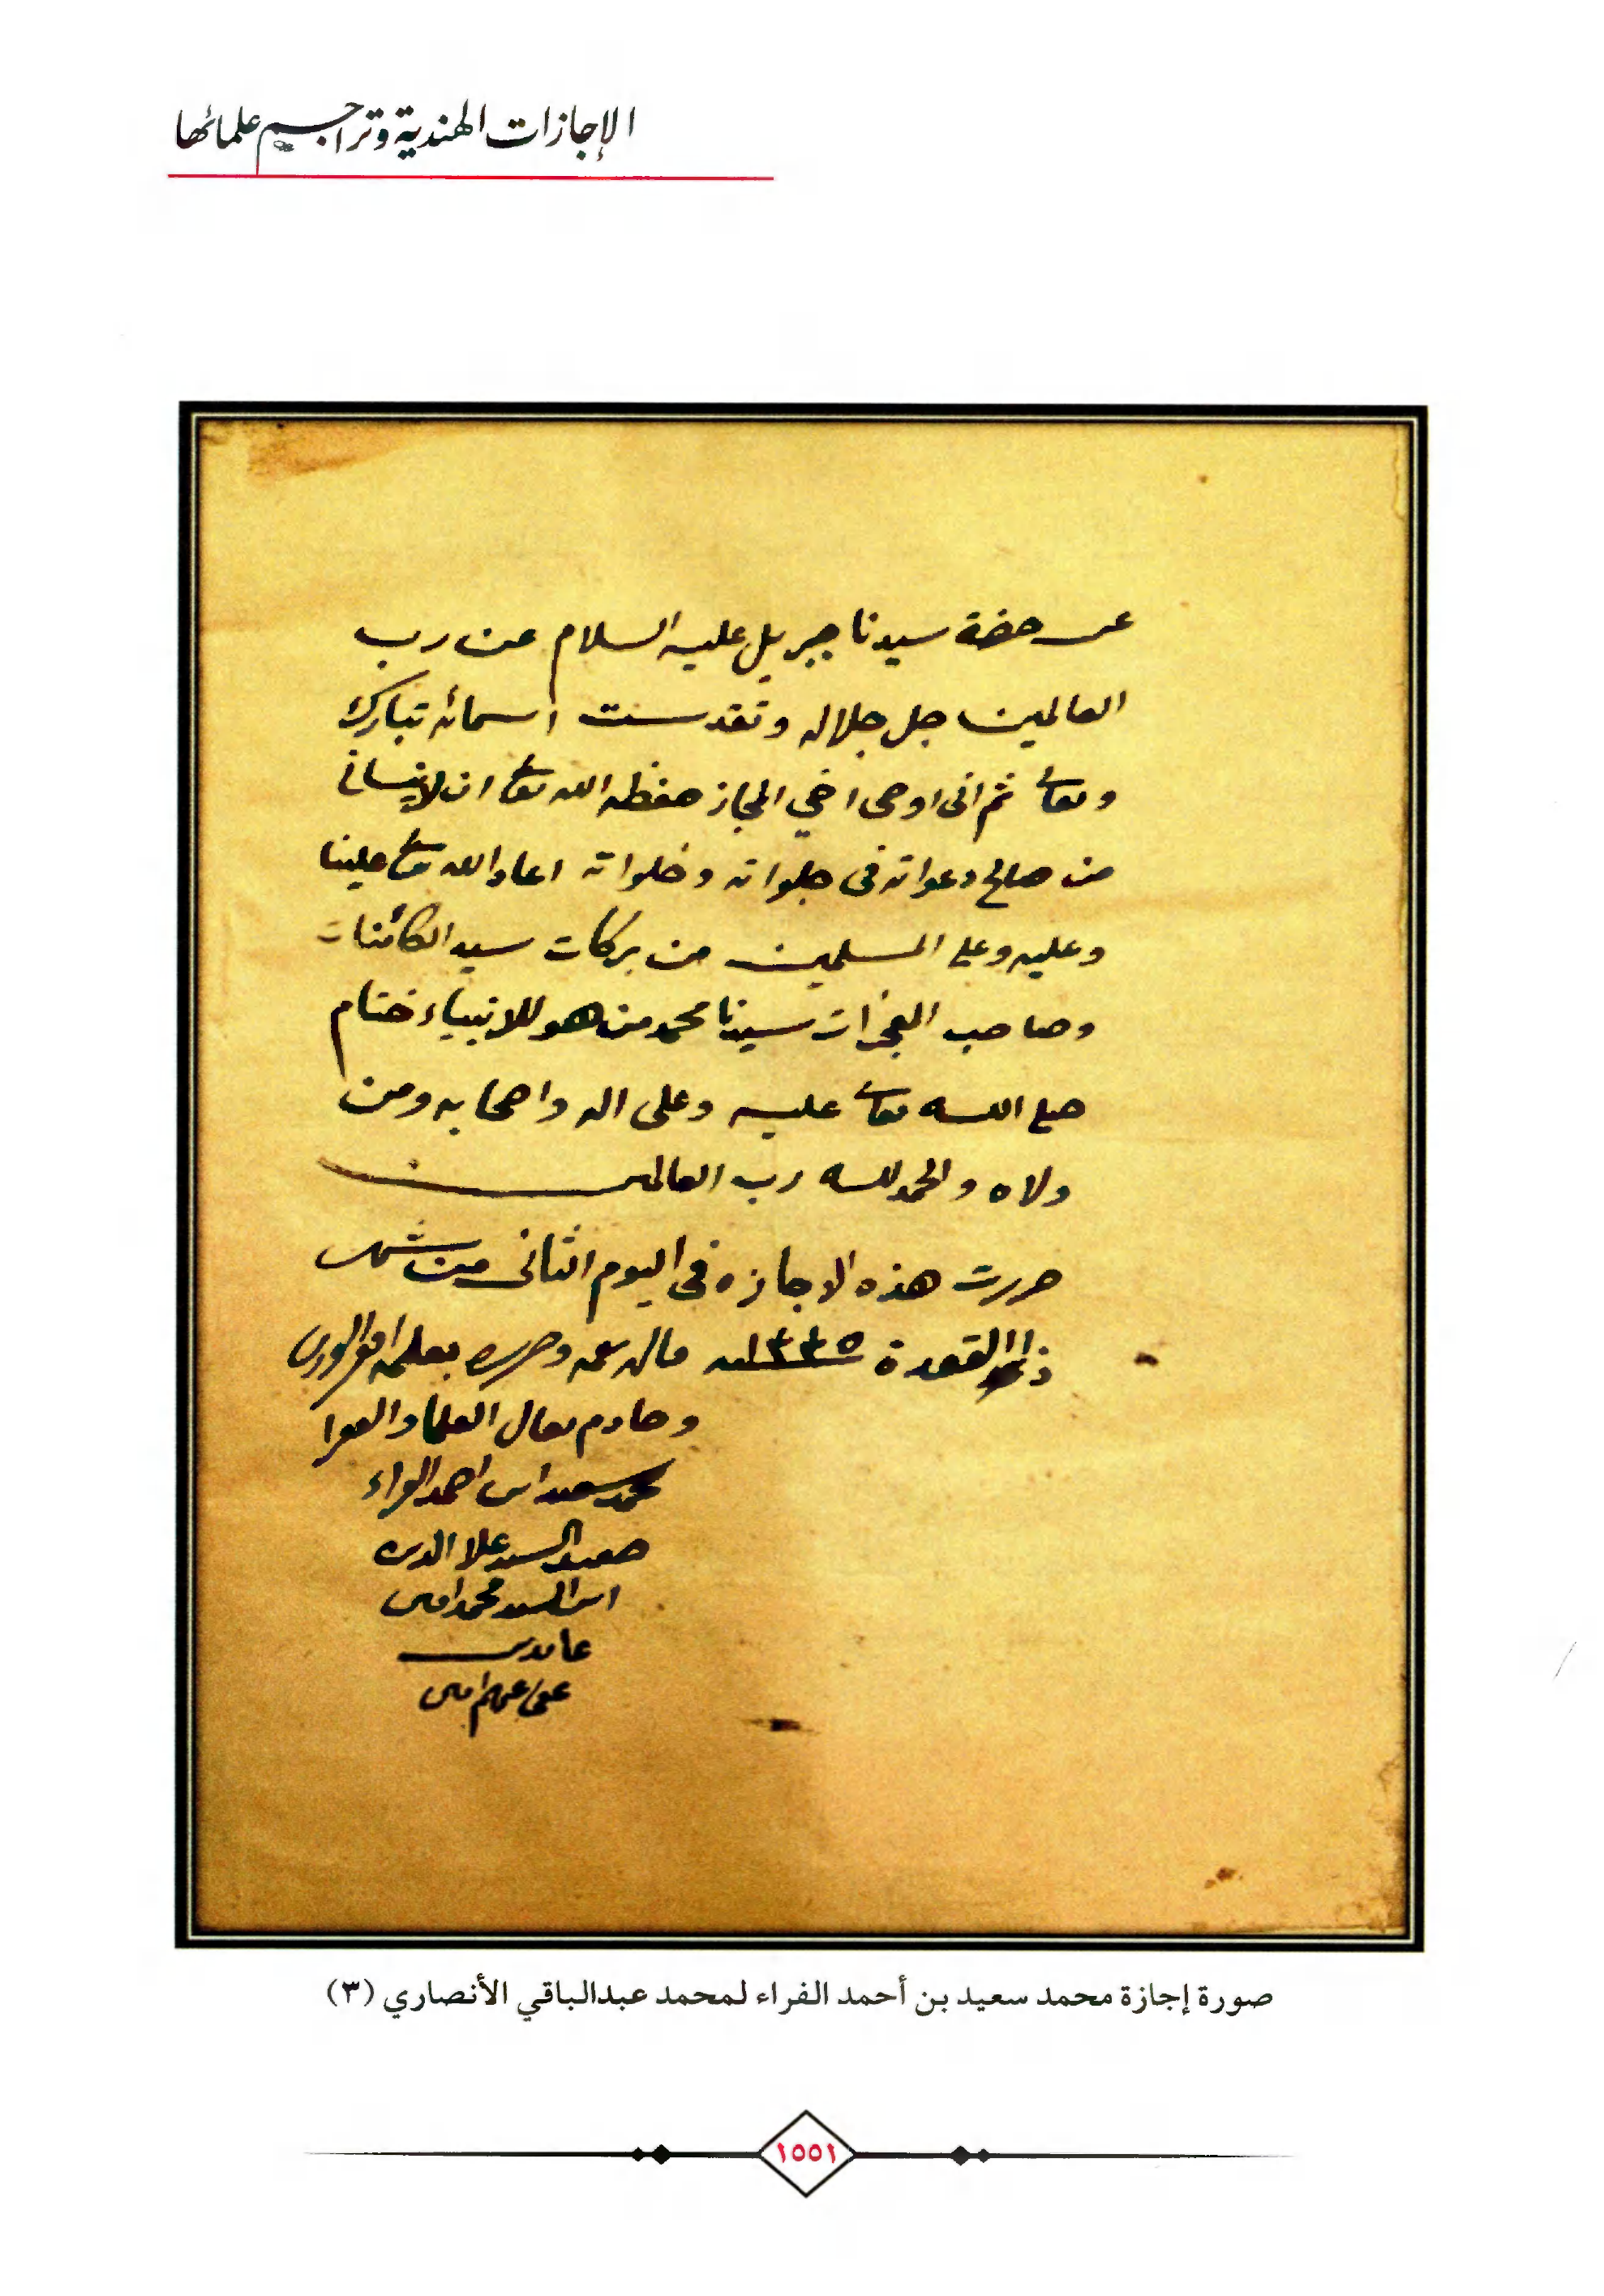 الإجازات الهندية وتراجم علمائها
عن حضرة سيدنا جبريل عليه السلام عن رب
العالمين جل جلاله وتقدست اسمائه تبارك
وتعالى ثم انى اوصى اخي المجاز حفظه الله تعالى ان لا ينسانى
من صالح دعواته فى جلواته وخلواته اعاد الله تعالى علينا
وعليه وعلى المسلمين من بركات سيد الكائنات
وصاحب المعجزات سيدنا محمد من هو للانبياء ختام
صلى الله تعالى عليه وعلى اله واصحابه ومن
ولاه والحمد لله رب العالمين
حررت هذه الاجازه فى اليوم الثانى من شهر
ذى القعدة ١٣٣٥ قاله بفمه وحرره بقلمه افقر الورى
وخادم نعال العلماء والفقرا
محمد سعيد ابن احمد الفراء
حفيد السيد علاء الدين
ابن السيد محمد امين
عابدين
عفى عنهم امين
صورة إجازة محمد سعيد بن أحمد الفراء لمحمد عبدالباقي الأنصاري (٣)
١٥٥١